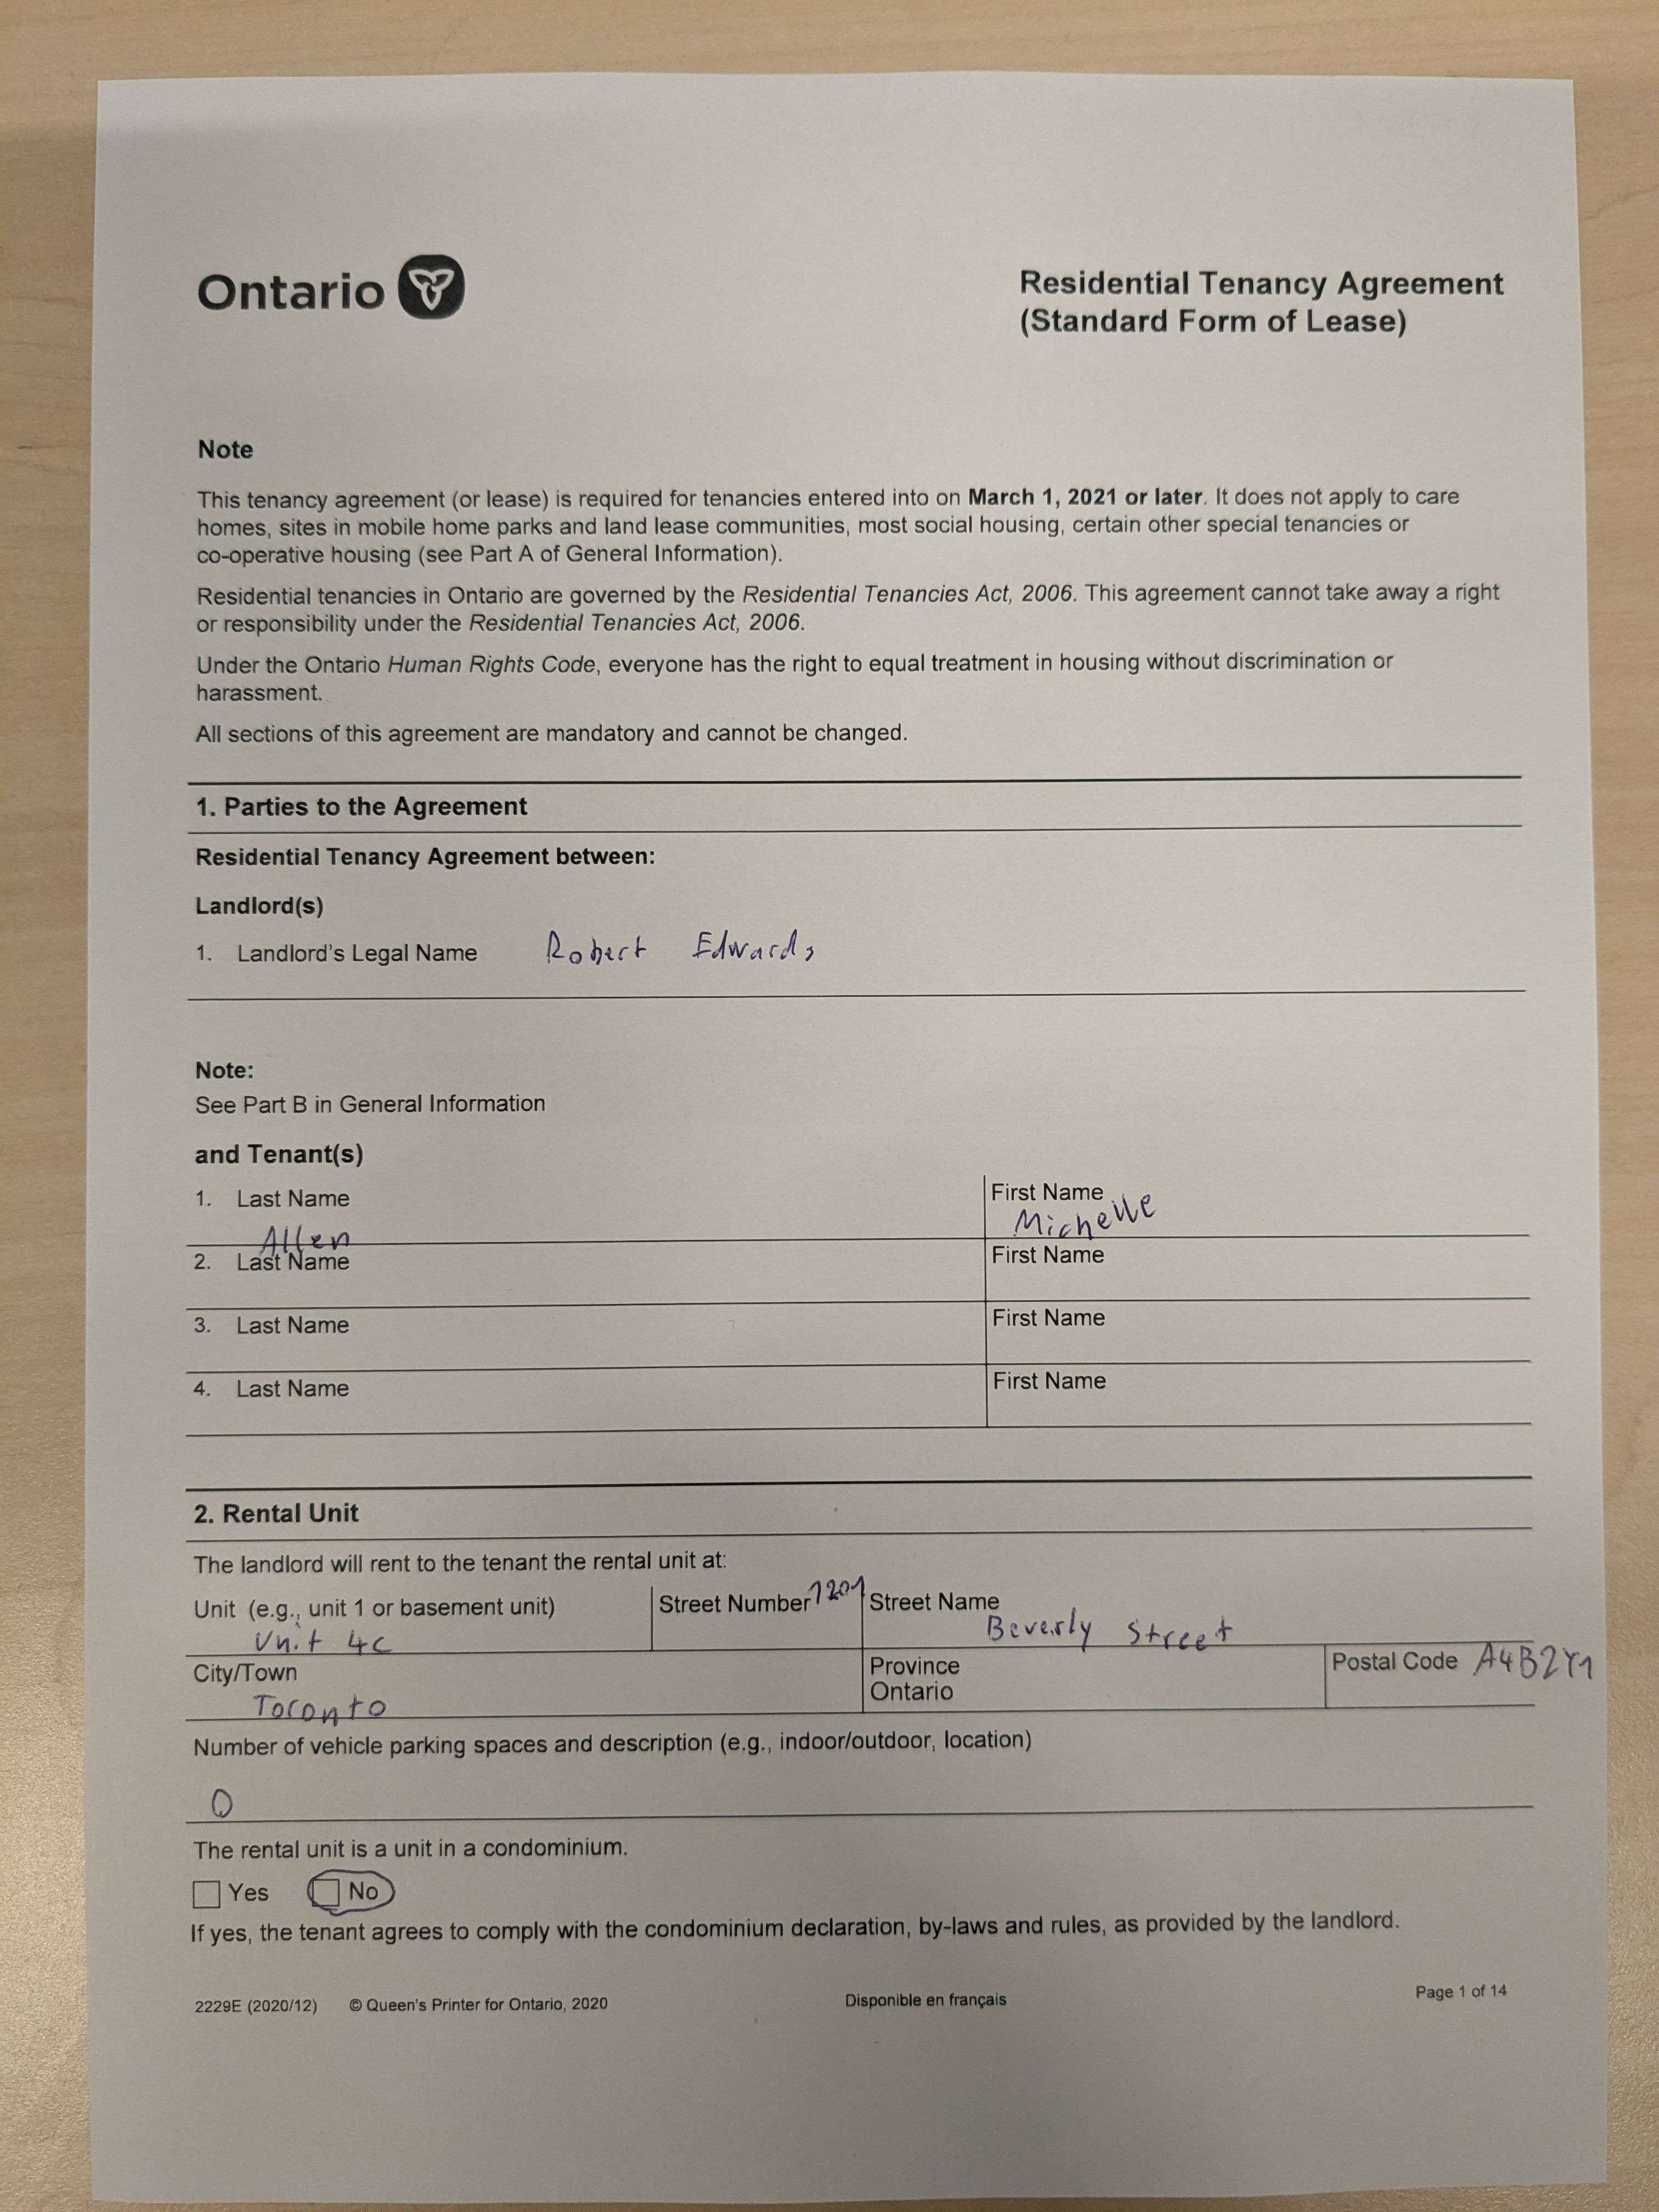 Ontario
Residential Tenancy Agreement
(Standard Form of Lease)
Note
This tenancy agreement (or lease) is required for tenancies entered into on March 1, 2021 or later. It does not apply to care
homes, sites in mobile home parks and land lease communities, most social housing, certain other special tenancies or
co-operative housing (see Part A of General Information).
Residential tenancies in Ontario are governed by the Residential Tenancies Act, 2006. This agreement cannot take away a right
or responsibility under the Residential Tenancies Act, 2006.
Under the Ontario Human Rights Code, everyone has the right to equal treatment in housing without discrimination or
harassment.
All sections of this agreement are mandatory and cannot be changed.
1. Parties to the Agreement
Residential Tenancy Agreement between:
Landlord(s)
1. Landlord's Legal Name Robert Edwards
Note:
See Part B in General Information
and Tenant(s)
1. Last Name First Name
Allen Michelle
2. Last Name First Name
3. Last Name First Name
4. Last Name First Name
2. Rental Unit
The landlord will rent to the tenant the rental unit at:
Unit (e.g., unit 1 or basement unit) Street Number 1201 Street Name
Unit 4C Beverly Street
City/Town Province Postal Code A4B2Y1
Toronto Ontario
Number of vehicle parking spaces and description (e.g., indoor/outdoor, location)
0
The rental unit is a unit in a condominium.
Yes No
If yes, the tenant agrees to comply with the condominium declaration, by-laws and rules, as provided by the landlord.
2229E (2020/12) © Queen's Printer for Ontario, 2020 Disponible en français Page 1 of 14